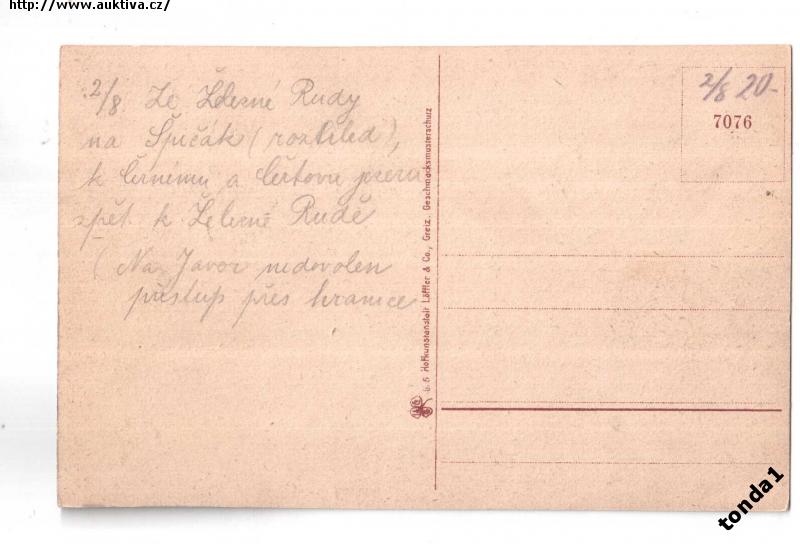 http://www.auktiva.cz/
2/8. Ze Železné Rudy
na Špičák (rozhled),
k černému a čertovu jezeru
zpět k Železné Rudě
(Na Javor nedovolen
přístup přes hranice
G. F. Hofkunstanstalt Löffler & Co., Greiz. Geschmacksmusterschutz
2/8 20-
7076
tonda1